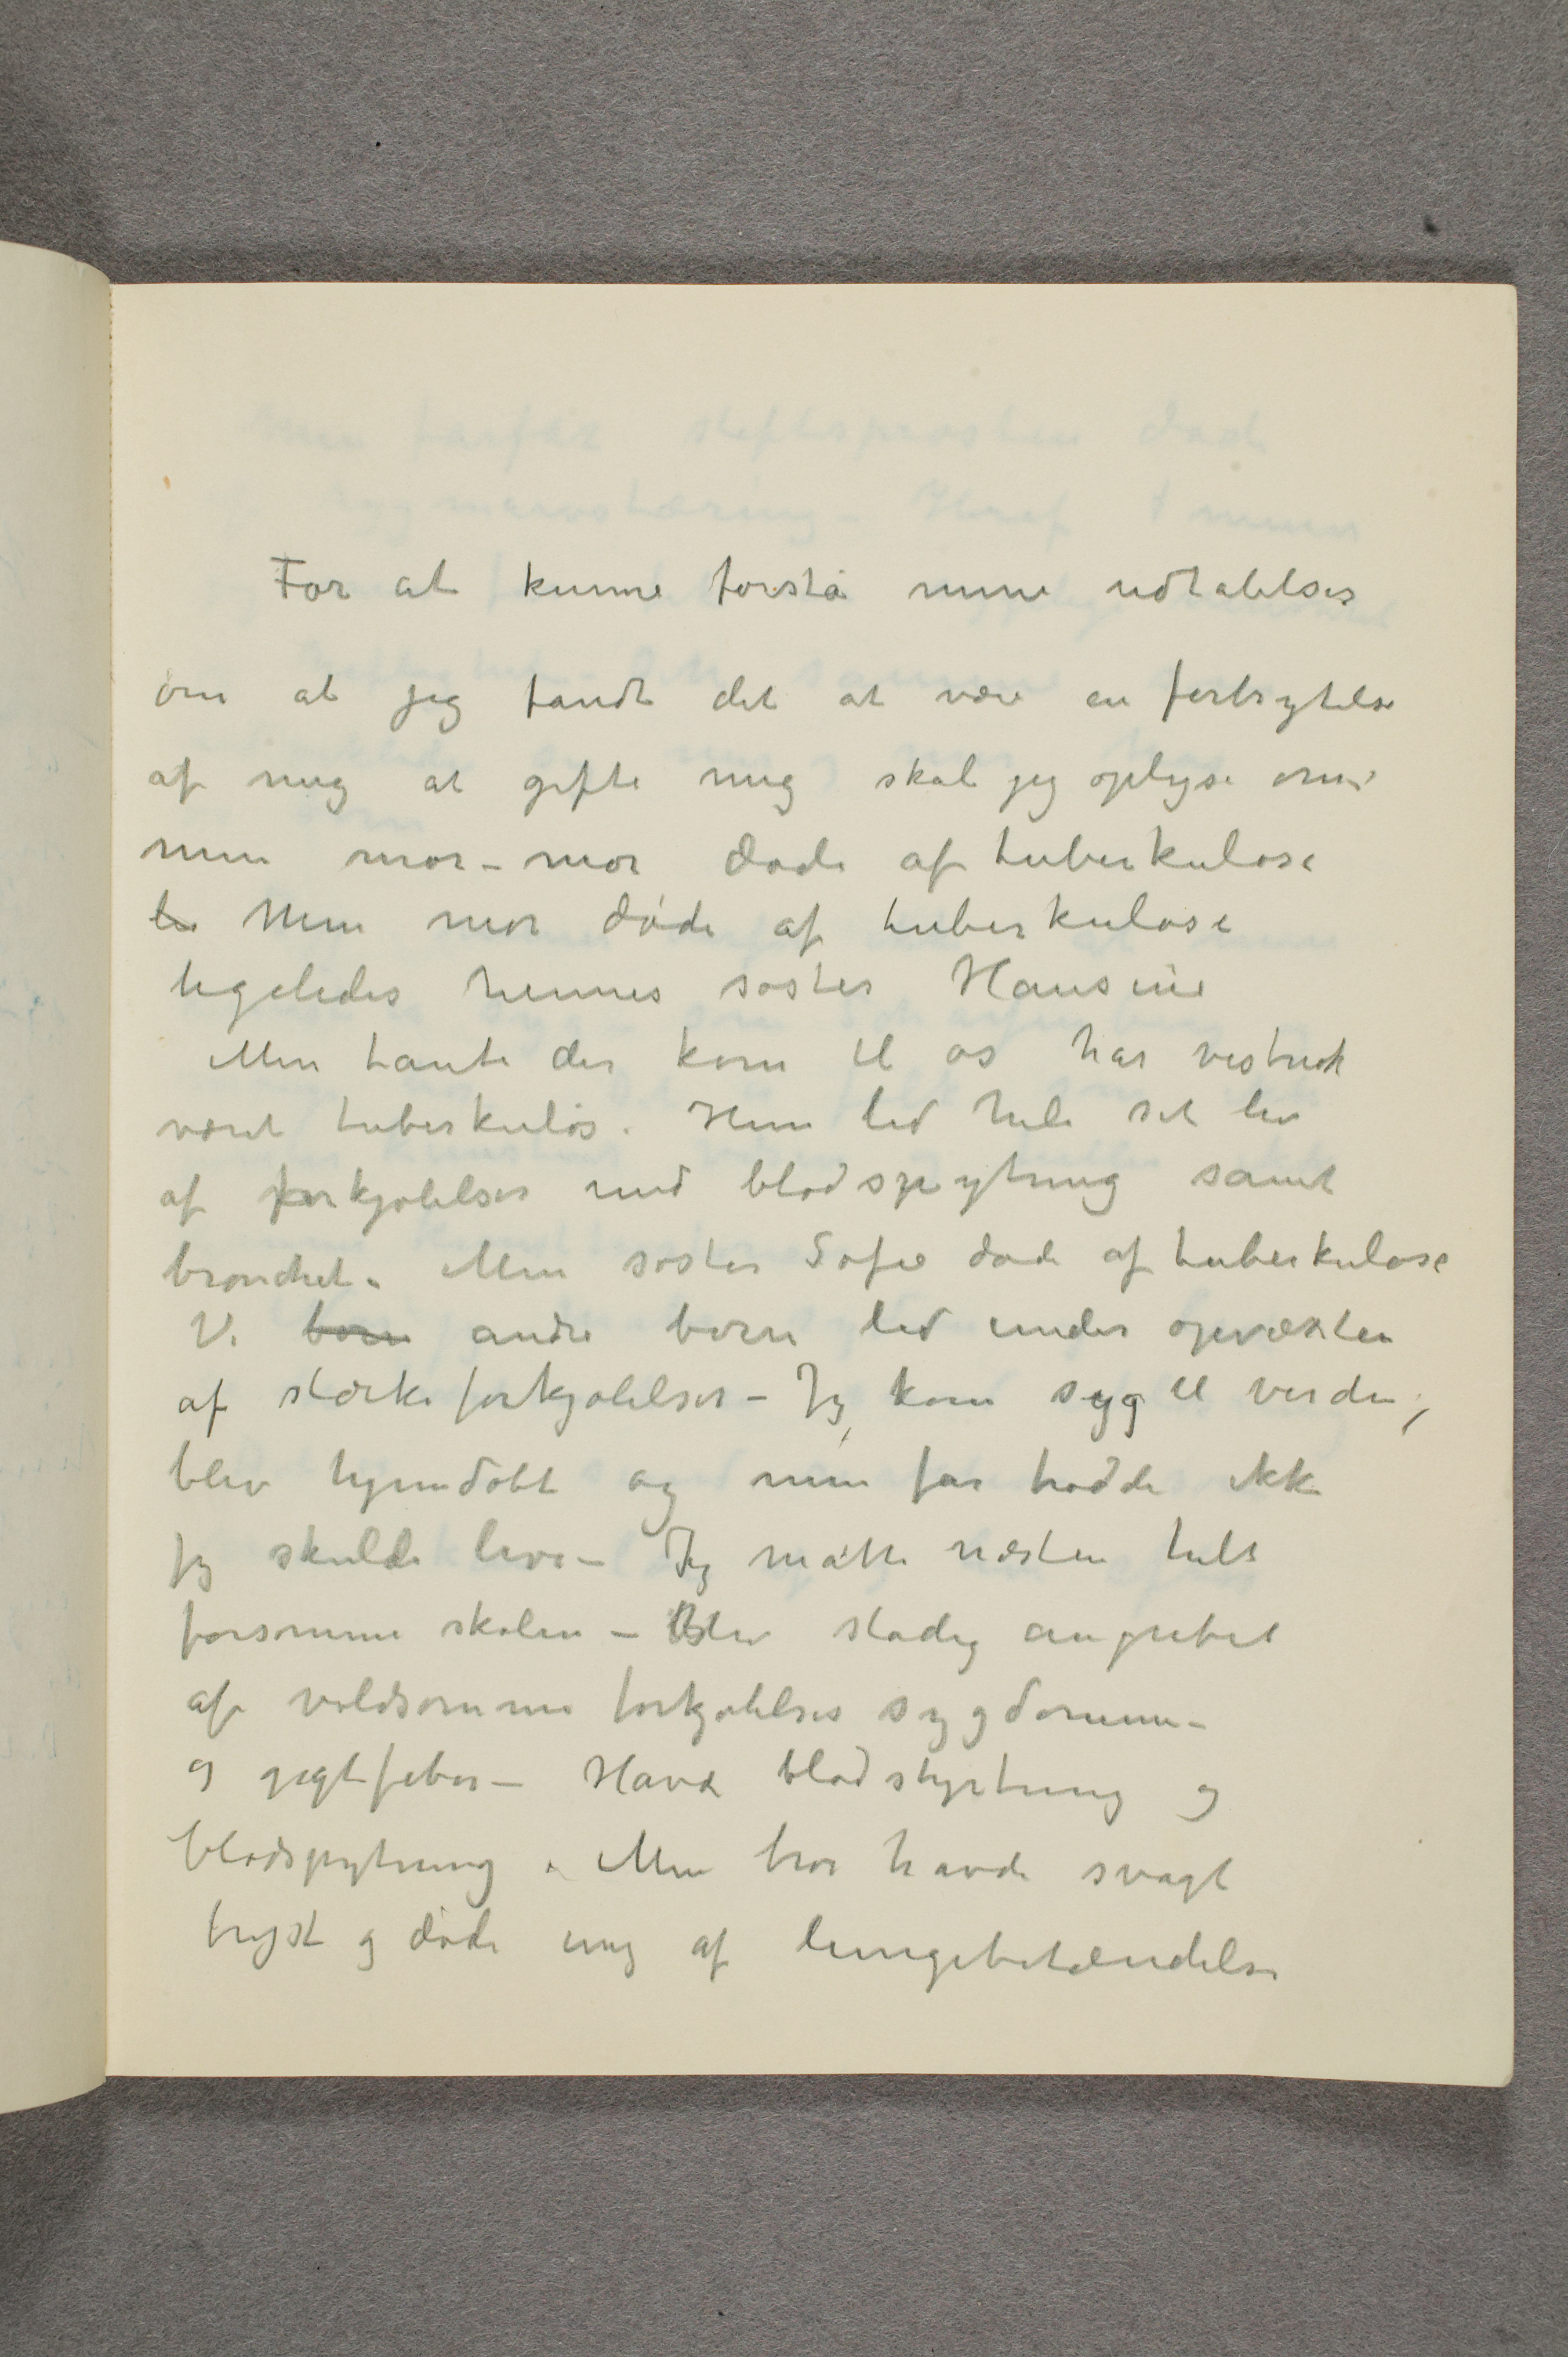 For at kunne forstå mine udtalelser
om at jeg fandt det at være en forbrytelse
af mig at gifte mig skal jeg oplyse om:
Min mor-mor døde af tuberkulose
li Min mor døde af tuberkulose
ligeledes hennes søster Hansine
Min tante der kom til os har vistnok
været tuberkuløs. Hun led hele sit liv
af forkjølelser med blodspytning samt
bronchit. Min søster Sofie døde af tuberkulose
Vi børn andre børn led under opvæxten
af stærke forkjølelser – Jeg kom syg til verden,
blev hjemdøbt og min far trodde ikke
jeg skulde leve – Jeg måtte næsten helt
forsømme skolen – Blev stadig angrebet
af voldsomme forkjølelses sygdomme –
og gigtfeber – Havde blodstyrtning og
blodspytning. Min bror havde svagt
bryst og døde ung af lungebetændelse